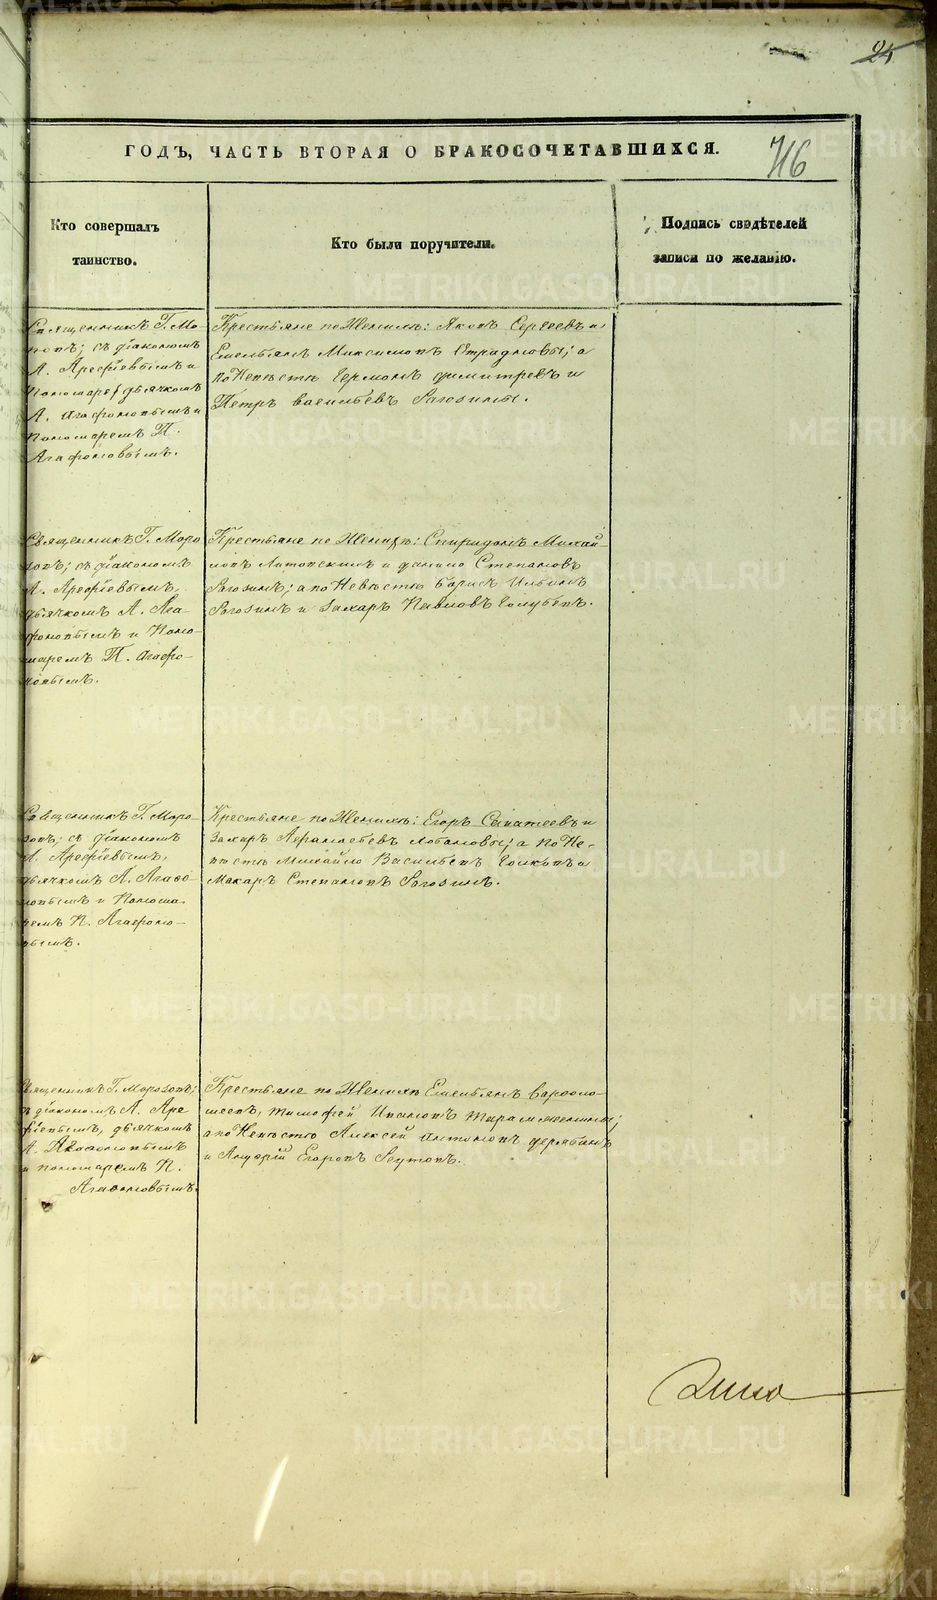 24
716
ГОДЪ, ЧАСТЬ ВТОРАЯ О БРАКОСОЧЕТАВШИХСЯ.
Кто совершалъ
таинство.
Кто были поручители.
Подпись свидѣтелей
записи по желанію.
Священникъ Г. Мо-
розовъ; съ діакономъ
А. Арефіевымъ и
дьячкомъ
А. Агафоновымъ и
пономаремъ П.
Агафоновымъ.
Крестьяне по Женихѣ: Яковъ Сергѣевъ и
Емельянъ Максимовъ; а
по Невѣстѣ Германъ Димитрев и
Петръ Васильевъ Рагозины.
Священникъ Г. Моро
зовъ; съ діакономъ
А. Арефіевымъ,
дьячкомъ А. Ага-
фоновымъ и Поно-
маремъ П. Агафо-
новымъ.
Крестьяне по Женихѣ: Спиридонъ Михай-
ловъ и Данило Степановъ
Рагозинъ; а по Невѣстѣ Борисъ Ильинъ
Рогозинъ и Захаръ Павловъ Голубевъ.
Священникъ Г. Моро-
зовъ; съ діакономъ
А. Арефіевымъ,
дьячкомъ А. Агафо
новымъ и Понома
ремъ П. Агафоно-
вымъ.
Крестьяне по Женихѣ: Егоръ Савватеевъ и
Захаръ Лобановы; а по Не-
вѣстѣ Михайло Васильевъ и
Макаръ Степановъ Рагозинъ.
Священникъ Г. Морозовъ;
съ діакономъ А. Аре
фіевымъ, дьячкомъ
А. Агафоновымъ
и пономаремъ П.
Агафоновымъ.
Крестьяне по Женихѣ Емельянъ Варфоло-
меевъ, Тимофей Ивановъ;
а по Невѣстѣ Алексей Антоновъ Дерябинъ
и Андрей Егоровъ Реутовъ.
METRIKI.GASO-URAL.RU